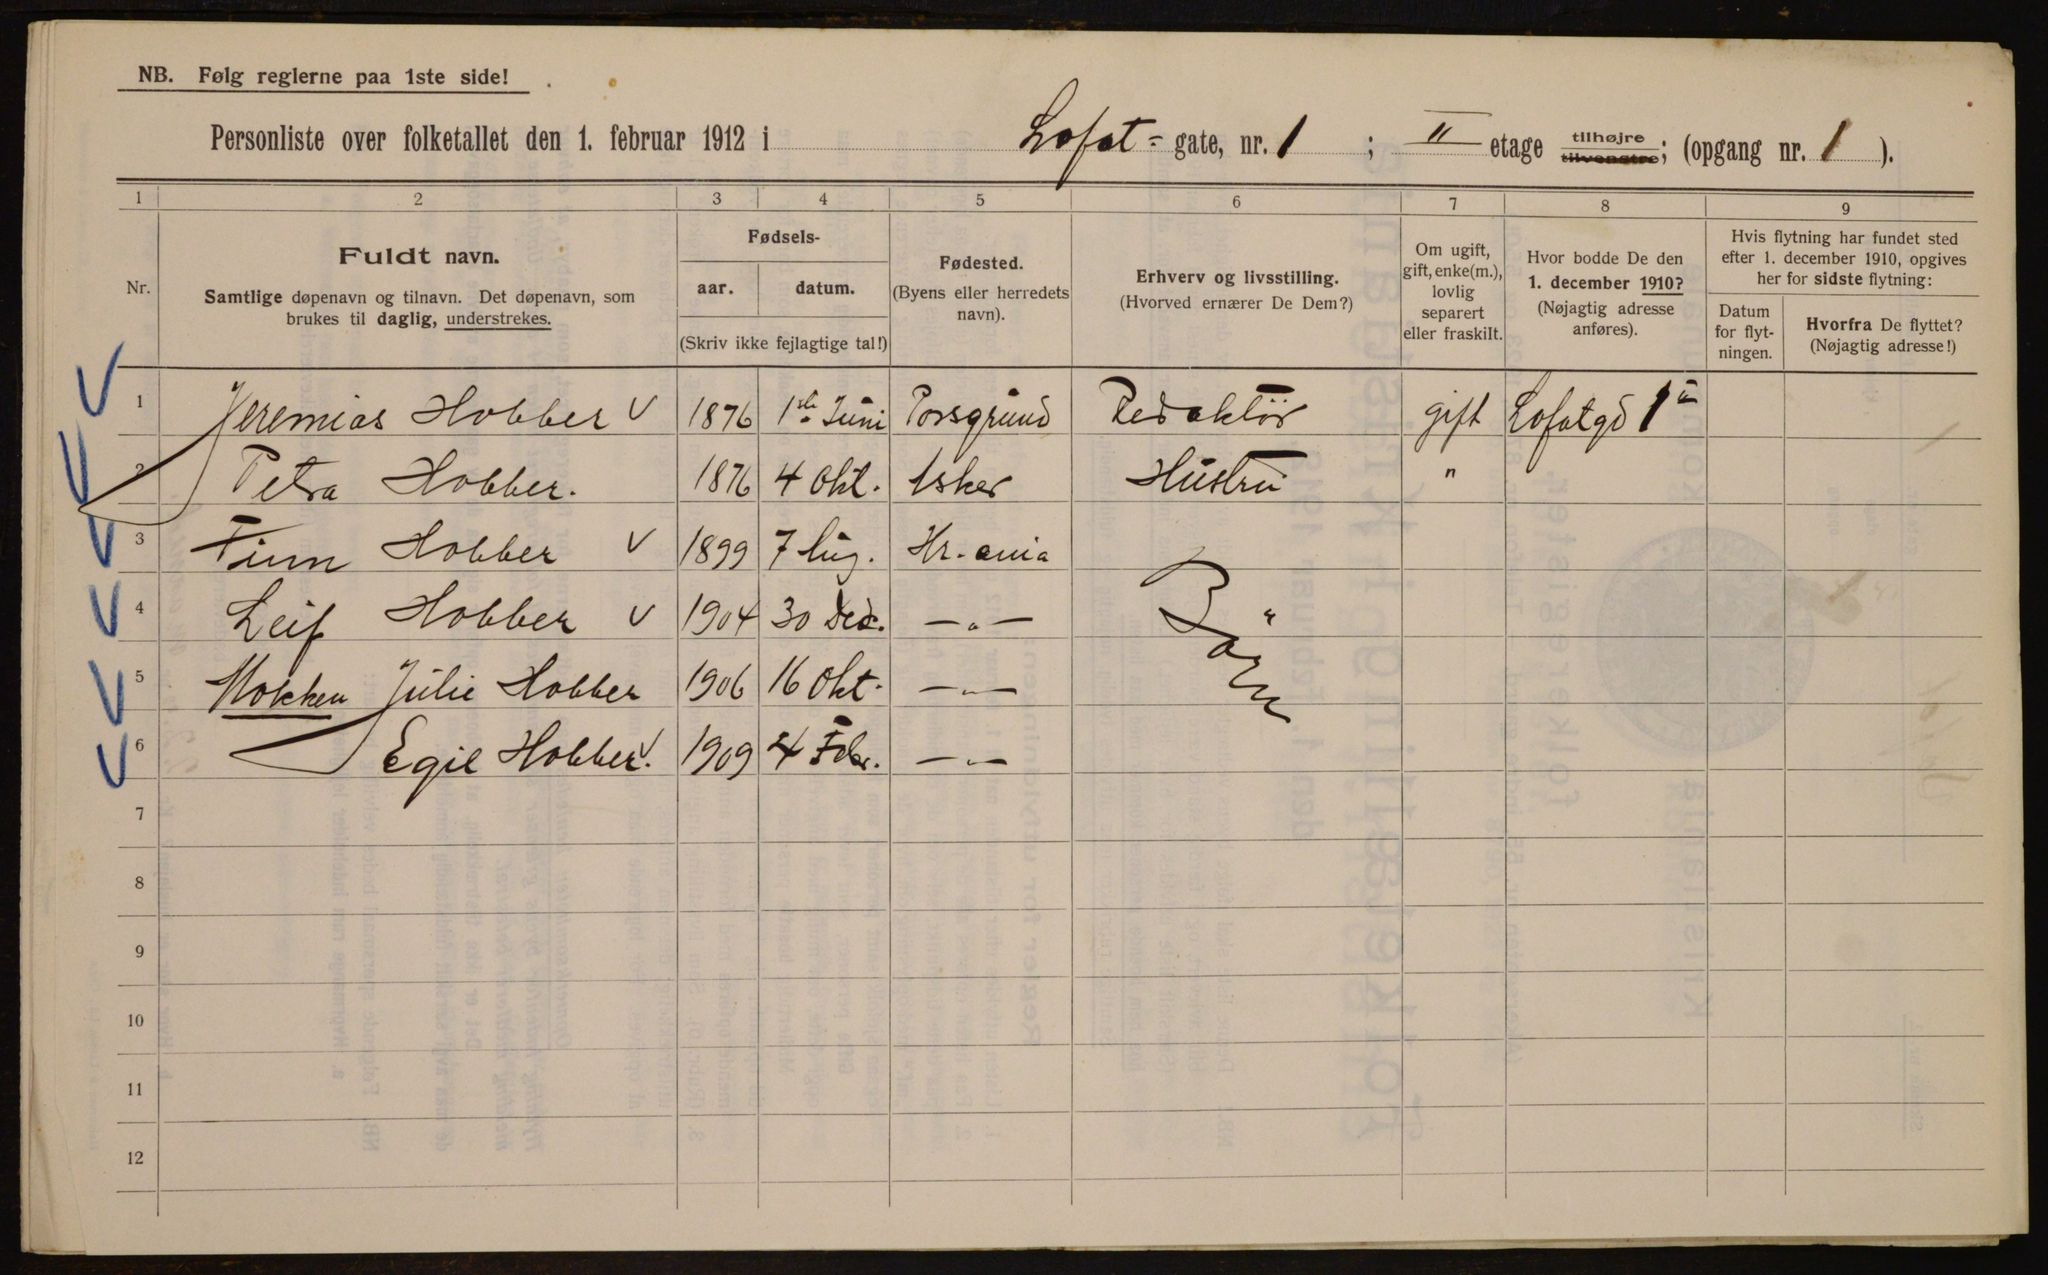 NB. Følg reglerne paa 1ste side!
Personliste over folketallet den 1. februar 1912 i Lofot- gate, nr. 1 ; II etage tilhøjre tilvenstre; (opgang nr. 1 ).
1 2 3 4 5 6 7 8 9
Nr.
Fuldt navn.
Samtlige døpenavn og tilnavn. Det døpenavn, som
brukes til daglig, understrekes.
Fødsels-
aar. datum.
(Skriv ikke fejlagtige tal!)
Fødested.
(Byens eller herredets
navn).
Erhverv og livsstilling.
(Hvorved ernærer De Dem?)
Om ugift,
gift, enke(m.),
lovlig
separert
eller fraskilt.
Hvor bodde De den
1. december 1910?
(Nøjagtig adresse
anføres).
Hvis flytning har fundet sted
efter 1. december 1910, opgives
her for sidste flytning:
Datum
for flyt-
ningen.
Hvorfra De flyttet?
(Nøjagtig adresse!)
1 Jeremias Hobber 1876 1ste Juni Porsgrund Redaktör gift Lofotgd 1 II
2 Petra Hobber. 1876 4 Okt. Asker Hustru "
3 Finn Hobber 1899 7 Aug. Kr-ania
4 Leif Hobber 1904 30 Dec. —"— Börn
5 Mokken Julie Hobber 1906 16 Okt. —"—
6 Egil Hobber. 1909 4 Febr. —"—
7
8
9
10
11
12